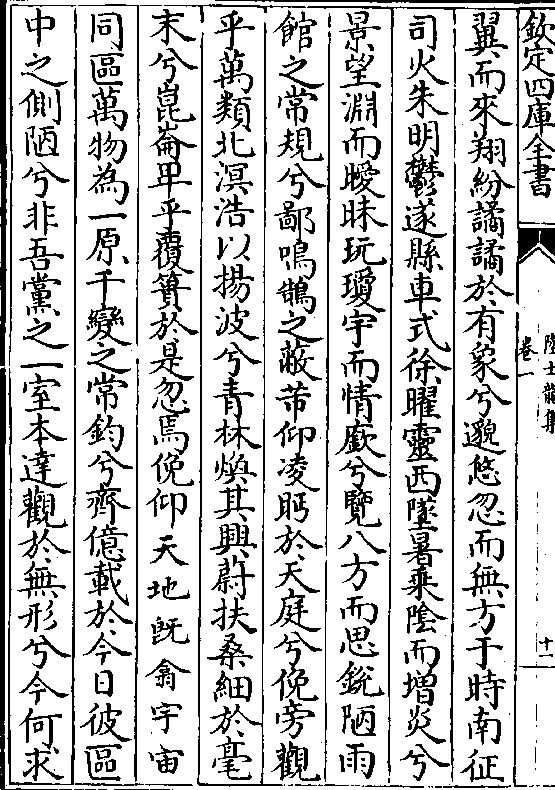 欽定四庫全書
陸士龍集
卷一
十一
翼而來翔紛譎譎於有象兮邈悠忽而無方于時南征
司火朱明鬱遂縣車式徐曜靈西墜暑乗陰而增炎兮
景望淵而曖昧玩瓊宇而情廞兮覽八方而思銳陋雨
館之常規兮鄙鳴鵠之蔽芾仰凌眄於天庭兮俛旁觀
乎萬類北溟浩以揚波兮青林煥其興蔚扶桑細於毫
末兮崑崙卑乎覆簣於是忽焉俛仰天地既翕宇宙
同區萬物為一原千變之常鈞兮齊億載於今日彼區
中之側陋兮非吾黨之一室本達觀於無形兮今何求